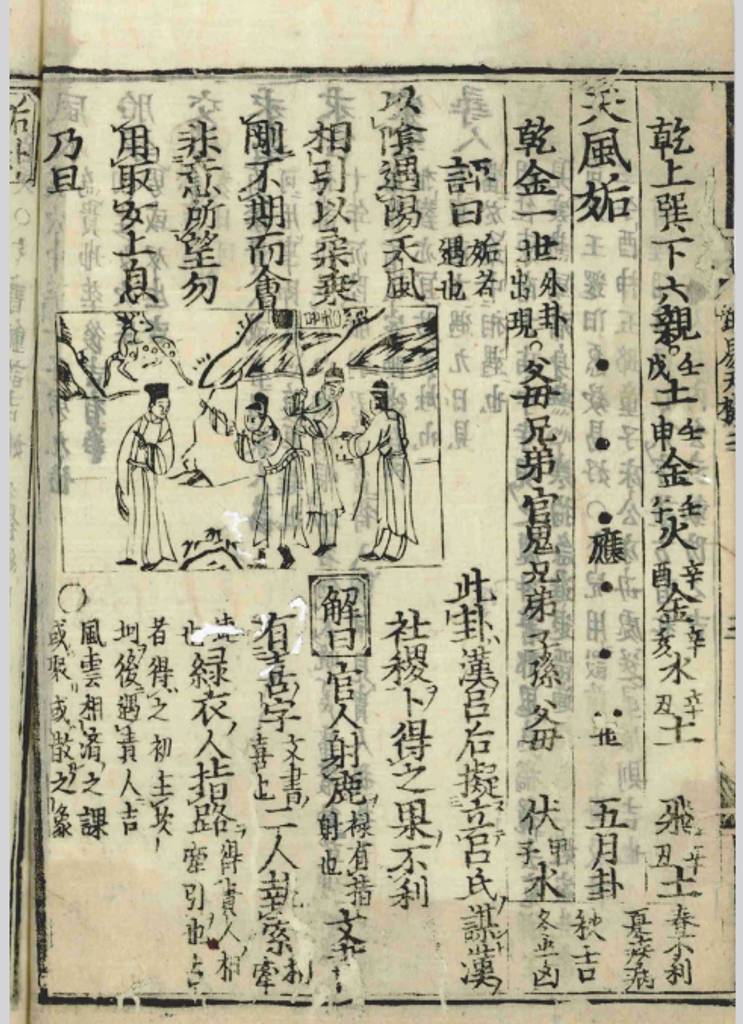 乾上巽下六親壬戌土壬申金壬午火辛酉金辛亥水辛丑土 飛辛丑土 春不利 夏疾病
天風姤 應 世 五月卦 秋吉 冬平凶
乾金一世外卦出現父母兄弟官鬼兄弟子孫父母 伏甲子水
評曰姤者遇也
以陰遇陽天風
相引以柔乘
剛不期而會
非意所望勿
用取女上息
乃且
此卦漢呂后擬立呂氏謀漢
社稷卜得之果不利
解曰官人射鹿祿有指射也文書
有喜字文書喜上二人牽索相牽
綠衣人指路得貴人相牽引也
者得之初主災
後遇貴人吉
風雲相濟之課
或聚或散之象